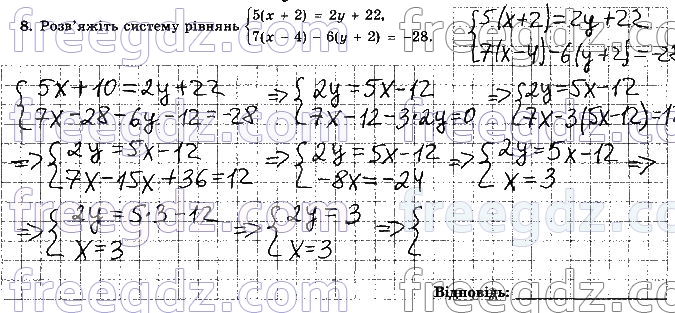 8. Розв'яжіть систему рівнянь { 5(x + 2) = 2y + 22, 7(x − 4) − 6(y + 2) = −28.
{ 5(x+2)=2y+22 7(x-4)-6(y+2)=-28
{ 5x+10=2y+22 7x-28-6y-12=-28 => { 2y=5x-12 7x-12-3·2y=0 => { 2y=5x-12 7x-3(5x-12)=12
=> { 2y=5x-12 7x-15x+36=12 => { 2y=5x-12 -8x=-24 => { 2y=5x-12 x=3 =>
=> { 2y=5·3-12 x=3 => { 2y=3 x=3 => {
Відповідь:
freegdz.com